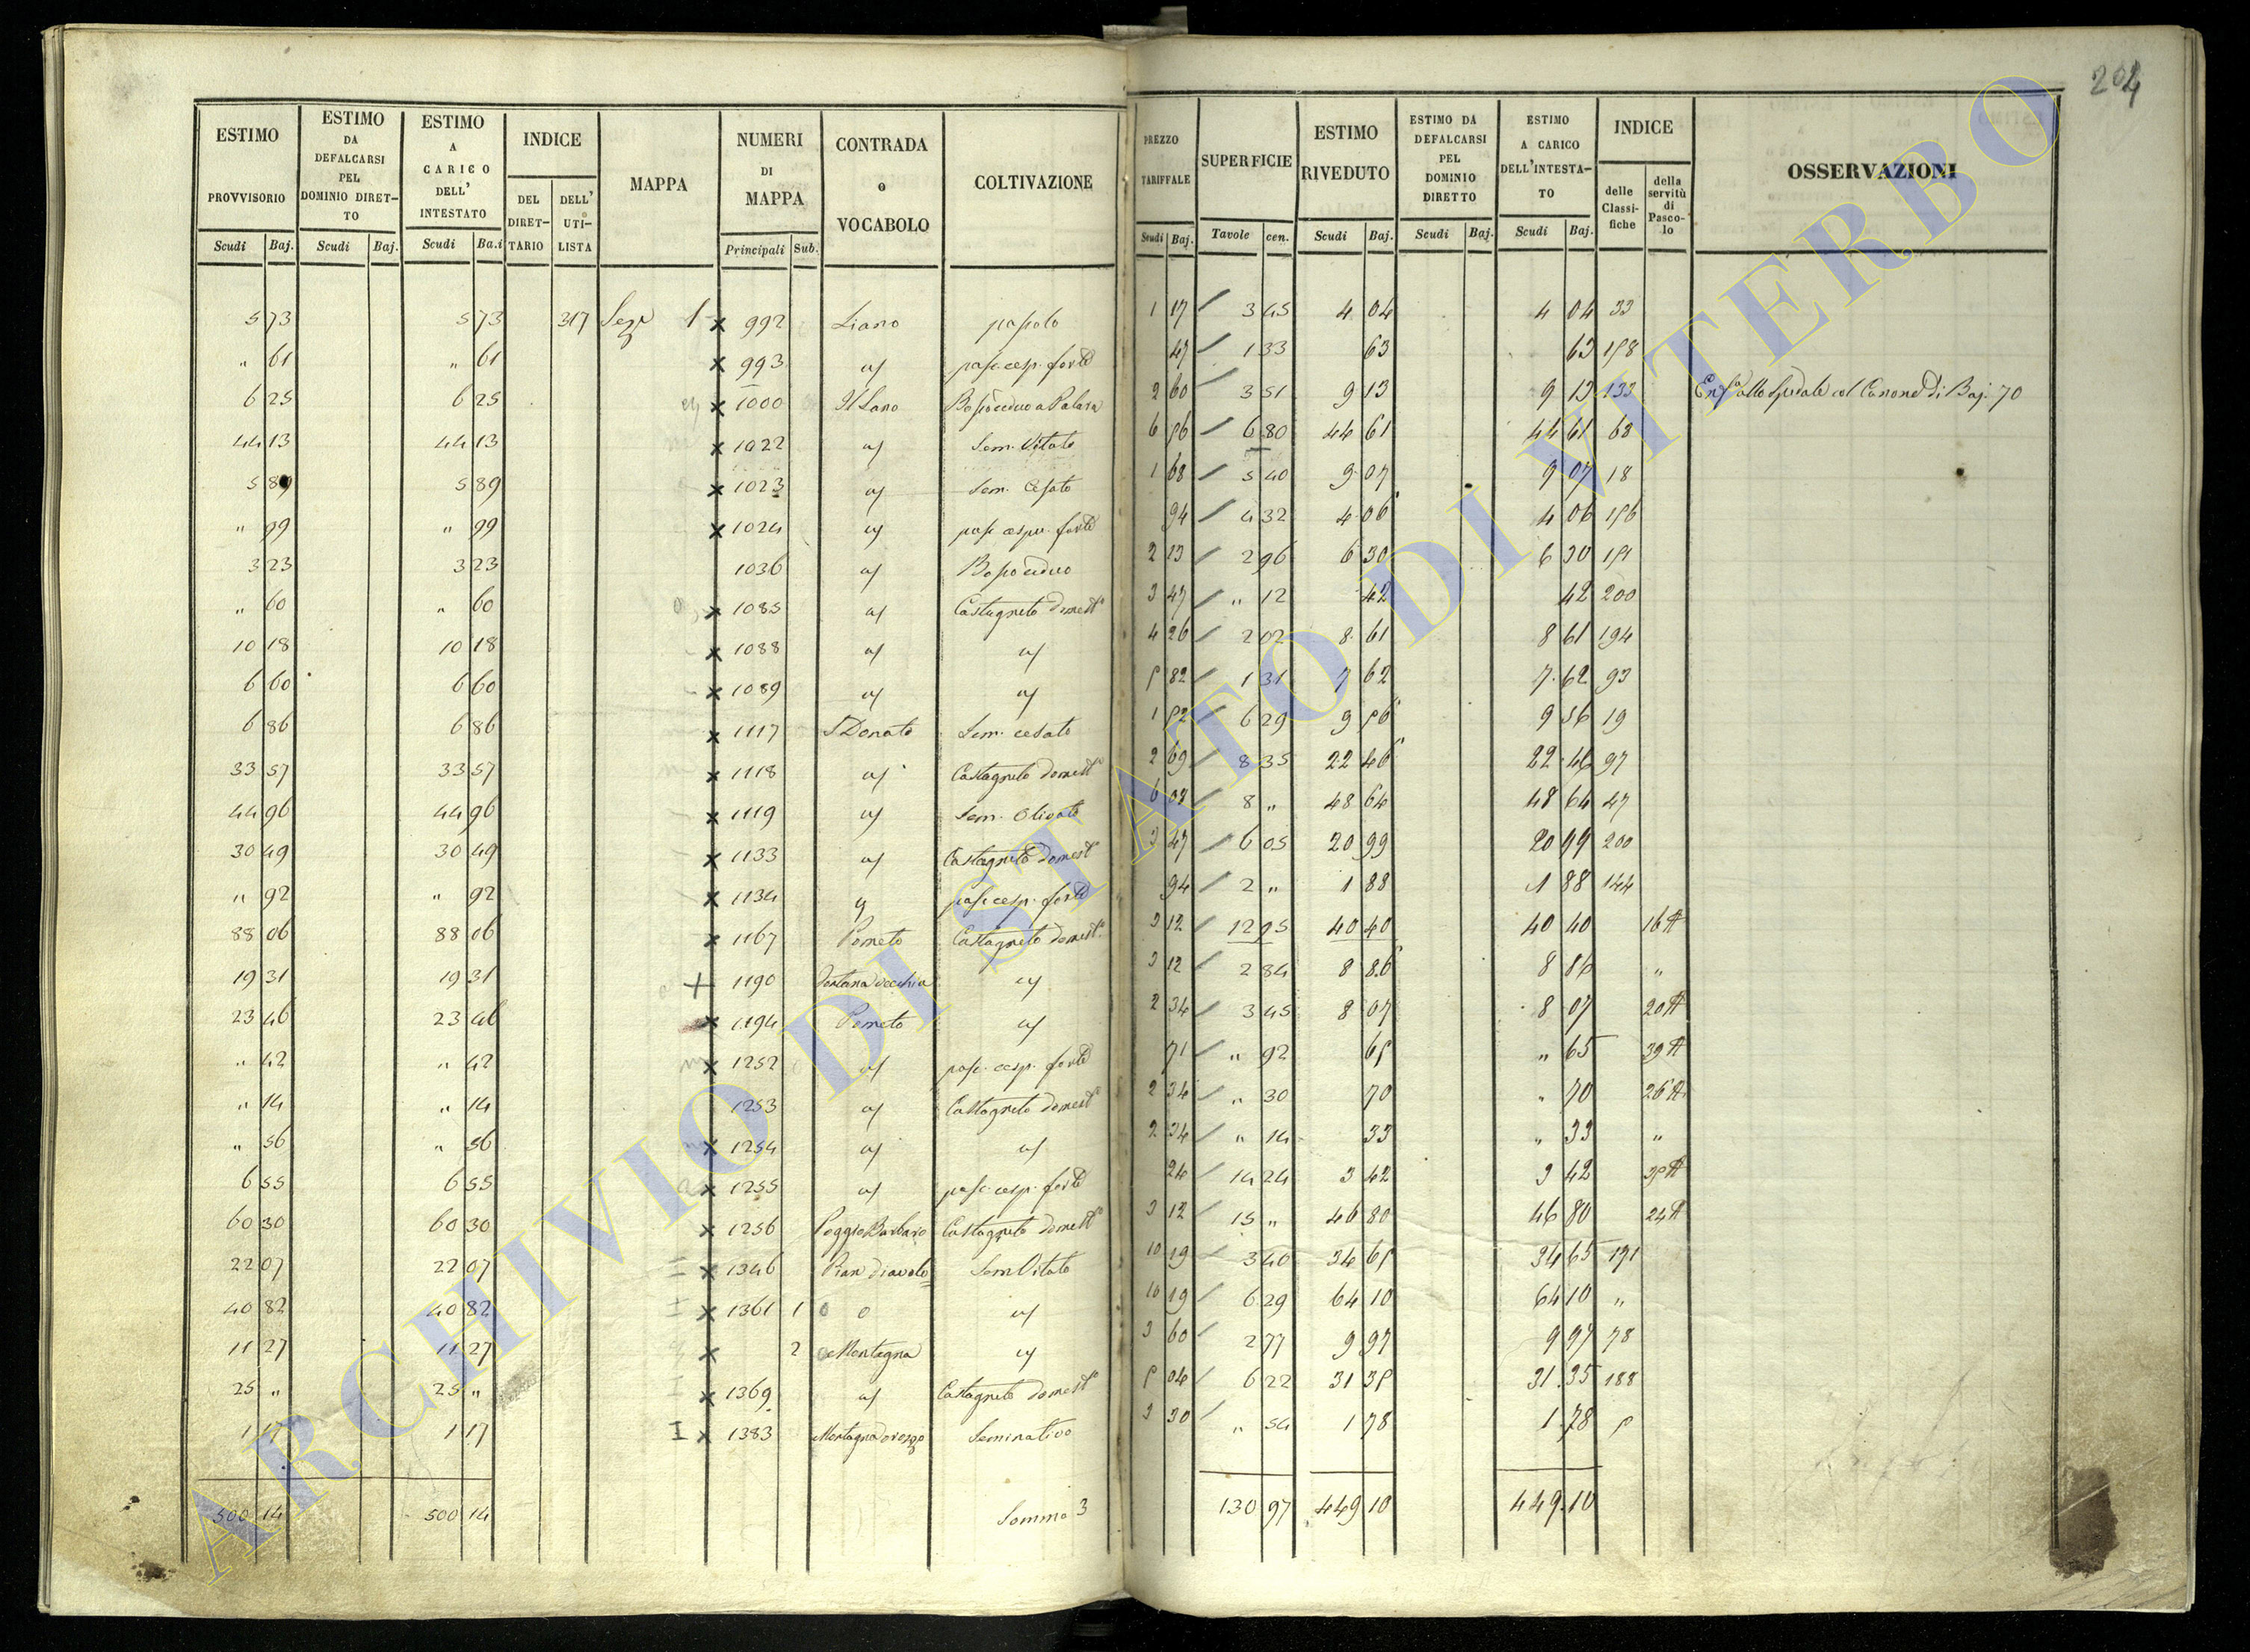 204
ESTIMO PROVVISORIO Scudi Baj.
ESTIMO DA DEFALCARSI PEL DOMINIO DIRETTO Scudi Baj.
ESTIMO A CARICO DELL' INTESTATO Scudi Ba.i
INDICE DEL DIRETTARIO DELL' UTILISTA
MAPPA
NUMERI DI MAPPA Principali Sub.
CONTRADA o VOCABOLO
COLTIVAZIONE
PREZZO TARIFFALE Scudi Baj.
SUPERFICIE Tavole cen.
ESTIMO RIVEDUTO Scudi Baj.
ESTIMO DA DEFALCARSI PEL DOMINIO DIRETTO Scudi Baj.
ESTIMO A CARICO DELL'INTESTATO Scudi Baj.
INDICE delle Classifiche della servitù di Pascolo
OSSERVAZIONI
5 73 5 73 317 Segr 1 x 992 Liano pascolo 1 17 3 45 4 04 4 04 33
" 61 " 61 x 993 " pasc. cesp. forte 47 1 33 63 63 158
6 25 6 25 x 1000 Il Lano Bosco ceduo a Palara 2 60 3 51 9 13 9 13 133 Enfa allo Spedale col Canone di Baj. 70
44 13 44 13 x 1022 " Sem. Vitato 6 56 6 80 44 61 44 61 68
5 89 5 89 x 1023 " Sem. Cesato 1 68 5 40 9 07 9 07 18
" 99 " 99 x 1024 " pasc. cespu. forte 94 4 32 4 06 4 06 156
3 23 3 23 1036 " Bosco ceduo 2 13 2 96 6 30 6 30 151
" 60 " 60 x 1085 " Castagneto domesto 3 47 " 12 42 42 200
10 18 10 18 x 1088 " " 4 26 2 02 8 61 8 61 194
6 60 6 60 x 1089 " " 5 82 1 31 7 62 7 62 93
6 86 6 86 x 1117 S Donato Sem. cesato 1 52 6 29 9 56 9 56 19
33 57 33 57 x 1118 " Castagneto domesto 2 69 8 35 22 46 22 46 97
44 96 44 96 x 1119 " Sem. Olivato 6 08 8 " 48 64 48 64 47
30 49 30 49 x 1133 " Castagneto domesto 3 47 6 05 20 99 20 99 200
" 92 " 92 x 1134 " pasc. cesp. forte 94 2 " 1 88 1 88 144
88 06 88 06 x 1167 Pometo Castagneto domesto 3 12 12 95 40 40 40 40 16
19 31 19 31 + 1190 Fontana vecchia " 3 12 2 84 8 86 8 86 "
23 46 23 46 x 1194 Pometo " 2 34 3 45 8 07 8 07 20
" 42 " 42 x 1252 " pasc. cesp. forte 71 " 92 65 " 65 39
" 14 " 14 1253 " Castagneto domesto 2 34 " 30 70 " 70 26
" 56 " 56 x 1254 " " 2 34 " 14 33 " 33 "
6 55 6 55 x 1255 " pasc. cesp. forte 24 14 24 3 42 3 42 35
60 30 60 30 x 1256 Poggio Barbaro Castagneto domesto 3 12 15 " 46 80 46 80 24
22 07 22 07 x 1346 Pian Diavolo Sem Vitato 10 19 3 40 34 65 34 65 171
40 82 40 82 x 1361 1 " 10 19 6 29 64 10 64 10 "
11 27 11 27 x 2 Montagna " 3 60 2 77 9 97 9 97 78
25 " 25 " x 1369 " Castagneto domesto 5 04 6 22 31 35 31 35 188
1 17 1 17 x 1383 Seminativo 3 30 " 54 1 78 1 78 5
500 14 500 14 Somma 3 130 97 449 10 449 10
ARCHIVIO DI STATO DI VITERBO